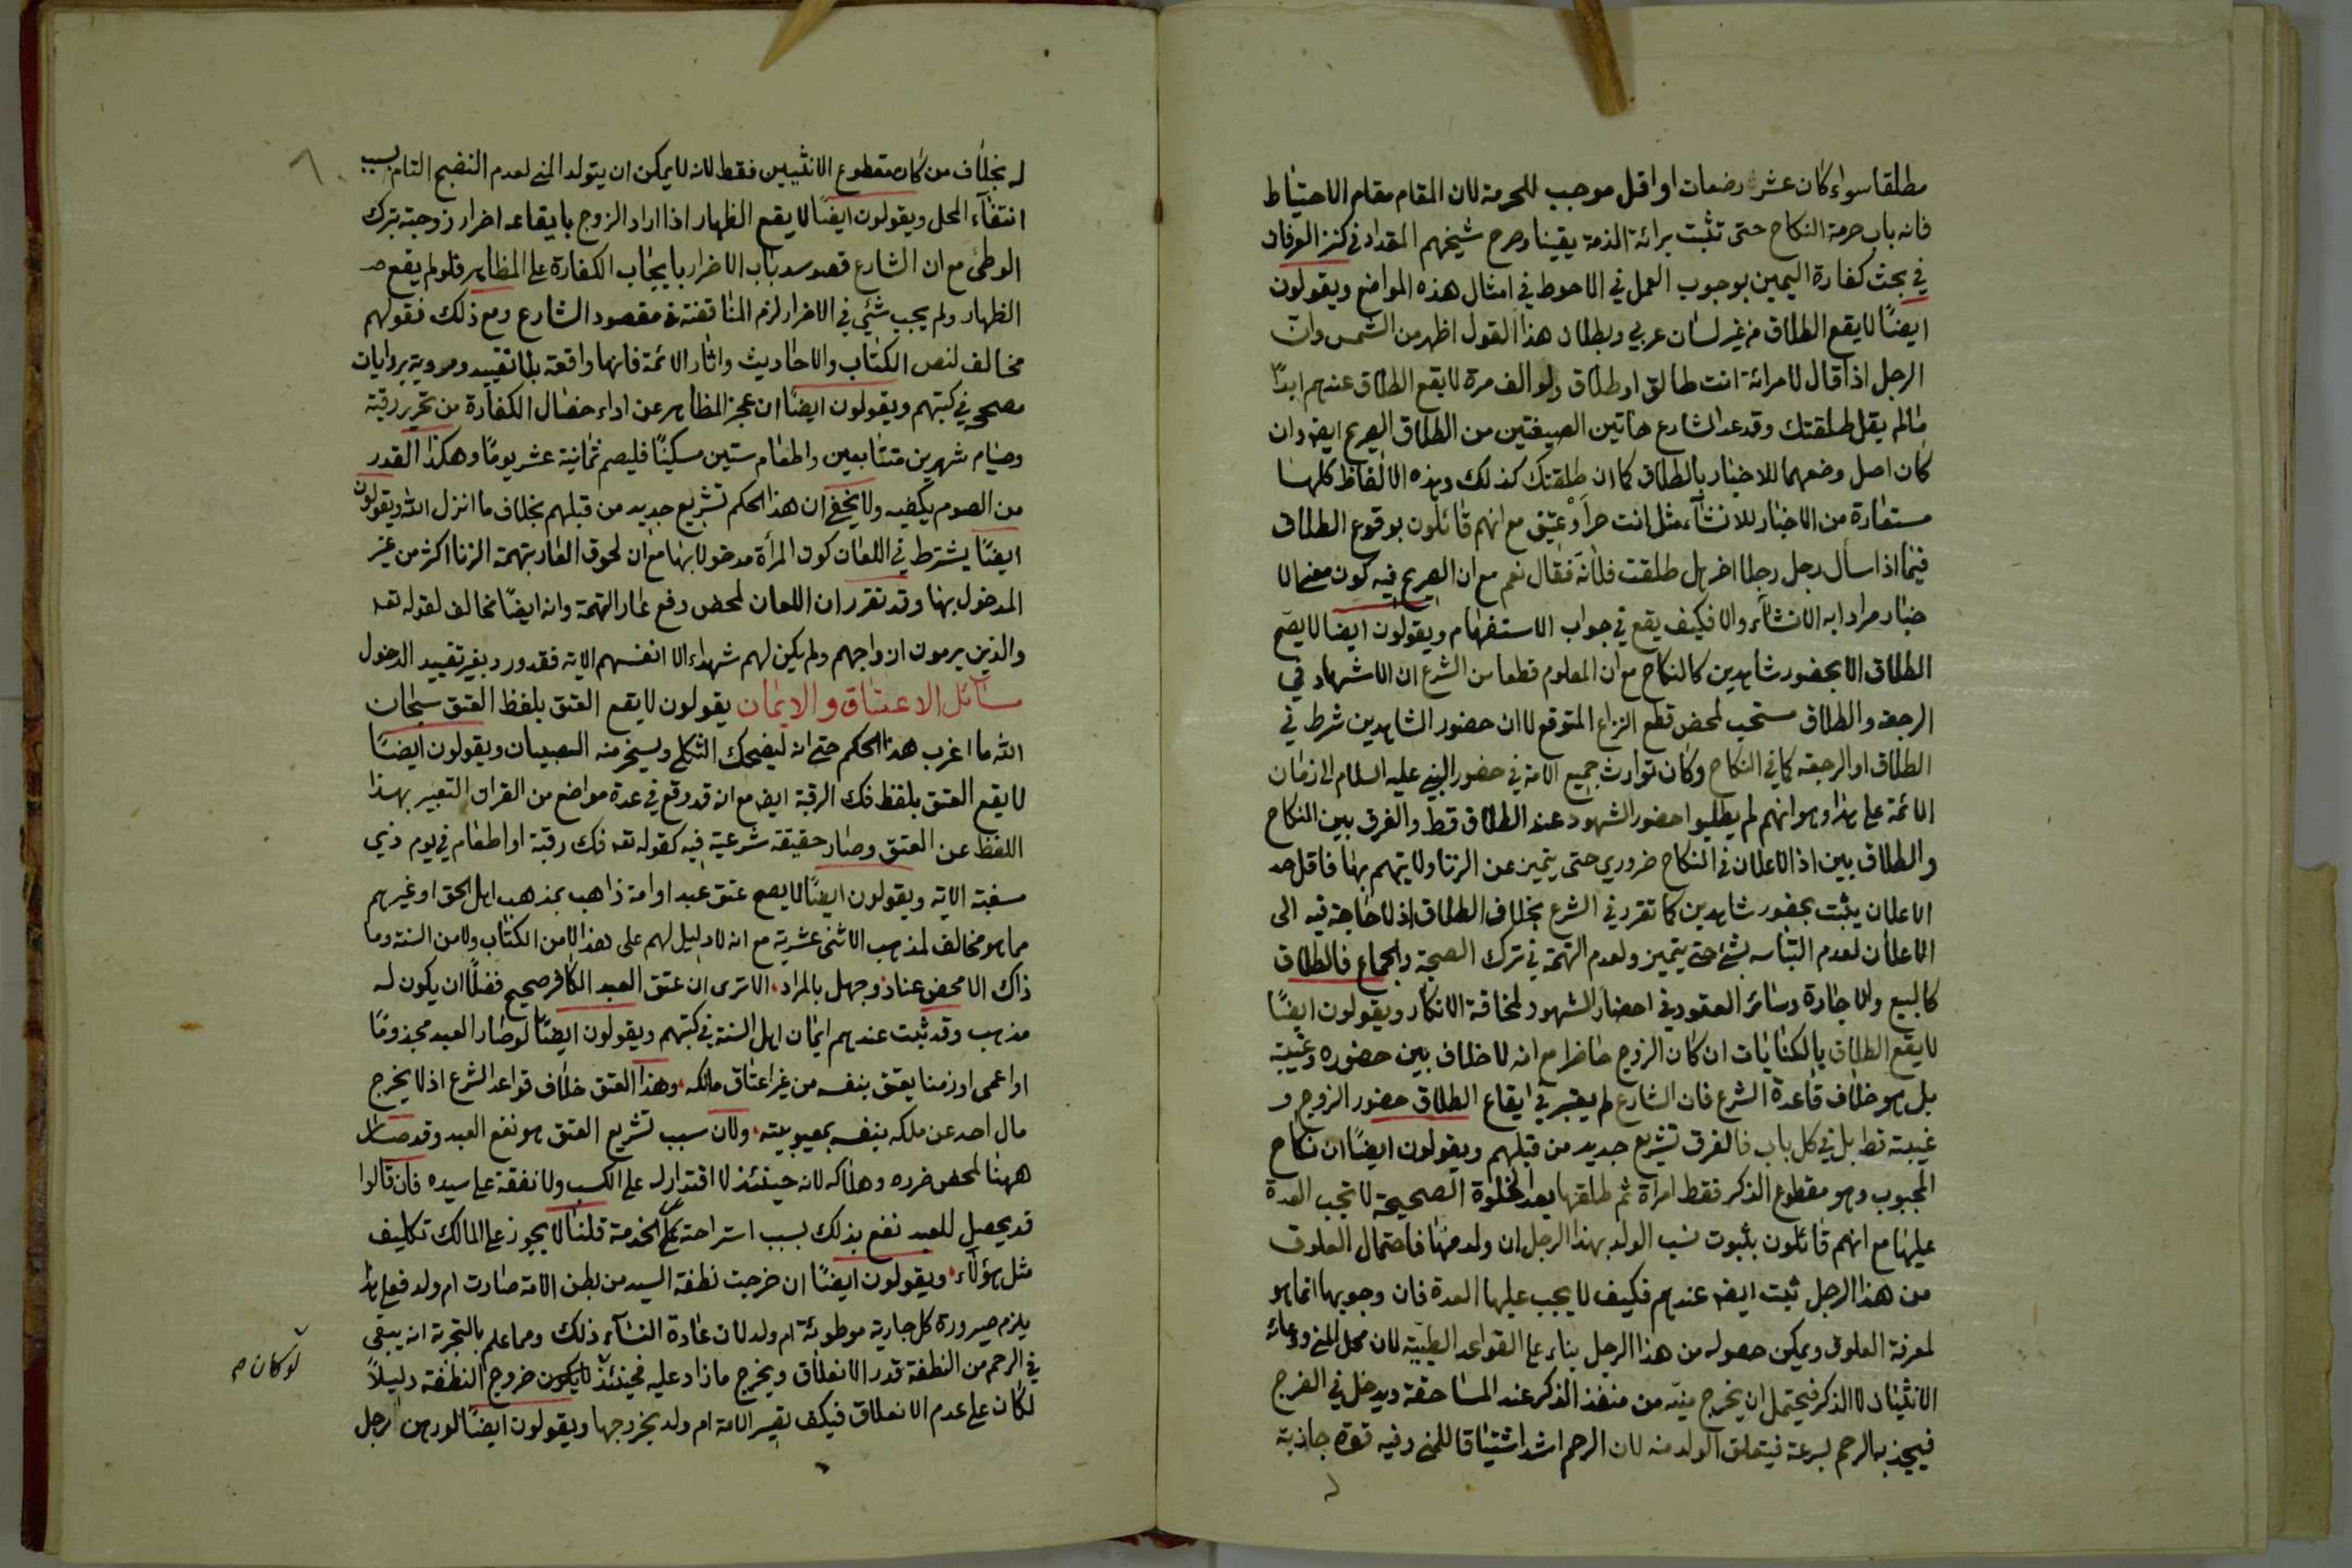 مطلقا سواء كان عشر رضعات او اقل موجب للحرمة لان المقام مقام الاحتياط
فانه باب حرمة النكاح حتى تثبت برائة الذمة يقينا وصرح شيخهم المقداد في كنز العرفان
في بحث كفارة اليمين بوجوب العمل في الاحوط في امثال هذه المواضع ويقولون
ايضًا لا يقع الطلاق من غير لسان عربي وبطلان هذا القول اظهر من الشمس وان
الرجل اذا قال لامرائة انت طالق او طلاق ولو الف مرة لا يقع الطلاق عندهم ابدًا
ما لم يقل طلقتك وقد عد الشارع هاتين الصيغتين من الطلاق الصريح ايضه وان
كان اصل وضعهما للاخبار بالطلاق كما ان طلقتك كذلك وهذه الالفاظ كلها
مستعارة من الاخبار للانشآء مثل انت حر أو عتيق مع انهم قائلون بوقوع الطلاق
فيما اذا سأل رجل رجلا اخر هل طلقت فلانة فقال نعم مع ان الصريح فيه كون معنى الا
خبار مرادا به الانشآء والا فكيف يقع في جواب الاستفهام ويقولون ايضا لا يصح
الطلاق الا بحضور شاهدين كالنكاح مع ان المعلوم قطعا من الشرع ان الاشهاد في
الرجعة والطلاق مستحب لمحض قطع النزاع المتوقع لا ان حضور الشاهدين شرط في
الطلاق او الرجعة كما في النكاح وكان توارث جميع الامة في حضور النبي عليه السلام الى زمان
الائمة على هذا وهو انهم لم يطلبوا حضور الشهود عند الطلاق قط والفرق بين النكاح
والطلاق بين اذ الاعلان في النكاح ضروري حتى يتميز عن الزنا ولا يتهم بها فاقل حد
الاعلان يثبت بحضور شاهدين كما تقرر في الشرع بخلاف الطلاق اذ لا حاجة فيه الى
الاعلان لعدم التباسه بشئ حتى يتميز ولعدم التهمة في ترك الصحبة والجماع فالطلاق
كالبيع والاجارة وسائر العقود في احضار الشهود لمخافة الانكار ويقولون ايضًا
لا يقع الطلاق بالكنايات ان كان الزوج حاضرا مع انه لا خلاف بين حضوره وغيبته
بل هو خلاف قاعدة الشرع فان الشارع لم يعتبر في ايقاع الطلاق حضور الزوج و
غيبته قط بل في كل باب فالفرق تشريع جديد من قبلهم ويقولون ايضًا ان نكاح
المجبوب وهو مقطوع الذكر فقط امرأة ثم طلقها بعد الخلوة الصحيحة لا تجب العدة
عليها مع انهم قائلون بثبوت نسب الولد بهذا الرجل ان ولد منها فاحتمال العلوق
من هذا الرجل ثبت ايضه عندهم فكيف لا يجب عليها العدة فان وجوبها انما هو
لمعرفة العلوق ويمكن حصوله من هذا الرجل بناء على القواعد الطبيّة لان محل المني وعائه
الانثيان لا الذكر فيحتمل ان يخرج منيّه من منفذ الذكر عند المساحقة ويدخل في الفرج
فيجذبه الرحم بسرعة فيتعلق الولد منه لان الرحم اشد اشتياقا للمني وفيه قوة جاذبة
له بخلاف من كان مقطوع الانثيين فقط لانه لا يمكن ان يتولد المني لعدم النضج التام بسبب
انتفآء المحل ويقولون ايضًا لا يقع الظهار اذا اراد الزوج بايقاعه اضرار زوجته بترك
الوطئ مع ان الشارع قصد سد باب الاضرار بايجاب الكفارة على المظاهر فلو لم يقع
الظهار ولم يجب شيئ في الاضرار لزم المناقضة في مقصود الشارع ومع ذلك فقولهم
مخالف لنص الكتاب والاحاديث واثار الائمة فانها واقعة بلا تقييد ومروية بروايات
مصححه في كتبهم ويقولون ايضًا ان عجز المظاهر عن اداء خصال الكفارة من تحرير رقبة
وصيام شهرين متتابعين واطعام ستين مسكينًا فليصم ثمانية عشر يومًا وهكذا القدر
من الصوم يكفيه ولا يخفى ان هذا الحكم تشريع جديد من قبلهم بخلاف ما انزل الله ويقولون
ايضًا يشترط في اللعان كون المرأة مدخولا بها مع ان لحوق العار بتهمة الزنا اكثر من غير
المدخول بها وقد تقرر ان اللعان لمحض دفع عار التهمة وانه ايضًا مخالف لقوله تعه
والذين يرمون ازواجهم ولم يكن لهم شهداء الا انفسهم الاية فقد ورد بغير تقييد الدخول
مسائل الاعتاق والايمان يقولون لا يقع العتق بلفظ العتق سبحان
الله ما اغرب هذا الحكم حتى انه ليضحك الثكلى ويسخر منه الصبيان ويقولون ايضًا
لا يقع العتق بلفظ فك الرقبة ايضه مع انه قد وقع في عدة مواضع من القران التعبير بهذا
اللفظ عن العتق وصار حقيقة شرعية فيه كقوله تعه فك رقبة او اطعام في يوم ذي
مسغبة الاية ويقولون ايضًا لا يصح عتق عبد او امة ذاهب بمذهب اهل الحق او غيرهم
مما هو مخالف لمذهب الاثني عشرية مع انه لا دليل لهم على هذا لا من الكتاب ولا من السنة وما
ذاك الا محض عناد وجهل بالمراد الا ترى ان عتق العبد الكافر صحيح فضلًا ان يكون له
مذهب وقد ثبت عندهم ايمان اهل السنة في كتبهم ويقولون ايضًا لو صار العبد مجذومًا
او اعمى او زمنا يعتق بنفسه من غير اعتاق مالكه وهذا العتق خلاف قواعد الشرع اذ لا يخرج
مال احد عن ملكه بنفسه بمعيوبيته ولان سبب تشريع العتق هو نفع العبد وقد صار
ههنا لمحض ضرره وهلاكه لانه حينئذ لا اقتدار له على الكسب ولا نفقة على سيده فان قالوا
قد يحصل للعبد نفع بذلك بسبب استراحته عن الخدمة قلنا لا يجوز على المالك تكليف
مثل هؤلآء ويقولون ايضًا ان خرجت نطفة السيد من بطن الامة صارت ام ولد فعلى هذا
يلزم صيرورة كل جارية موطوئة ام ولد لان عادة النسآء ذلك ومما علم بالتجربة انه يبقى
في الرحم من النطفة قدر الانعلاق ويخرج ما زاد عليه فحينئذ لا يكون خروج النطفة دليلاً
لو كان صح
لكان على عدم الانعلاق فكيف تصير الامة ام ولد بخروجها ويقولون ايضًا لو رهن الرجل